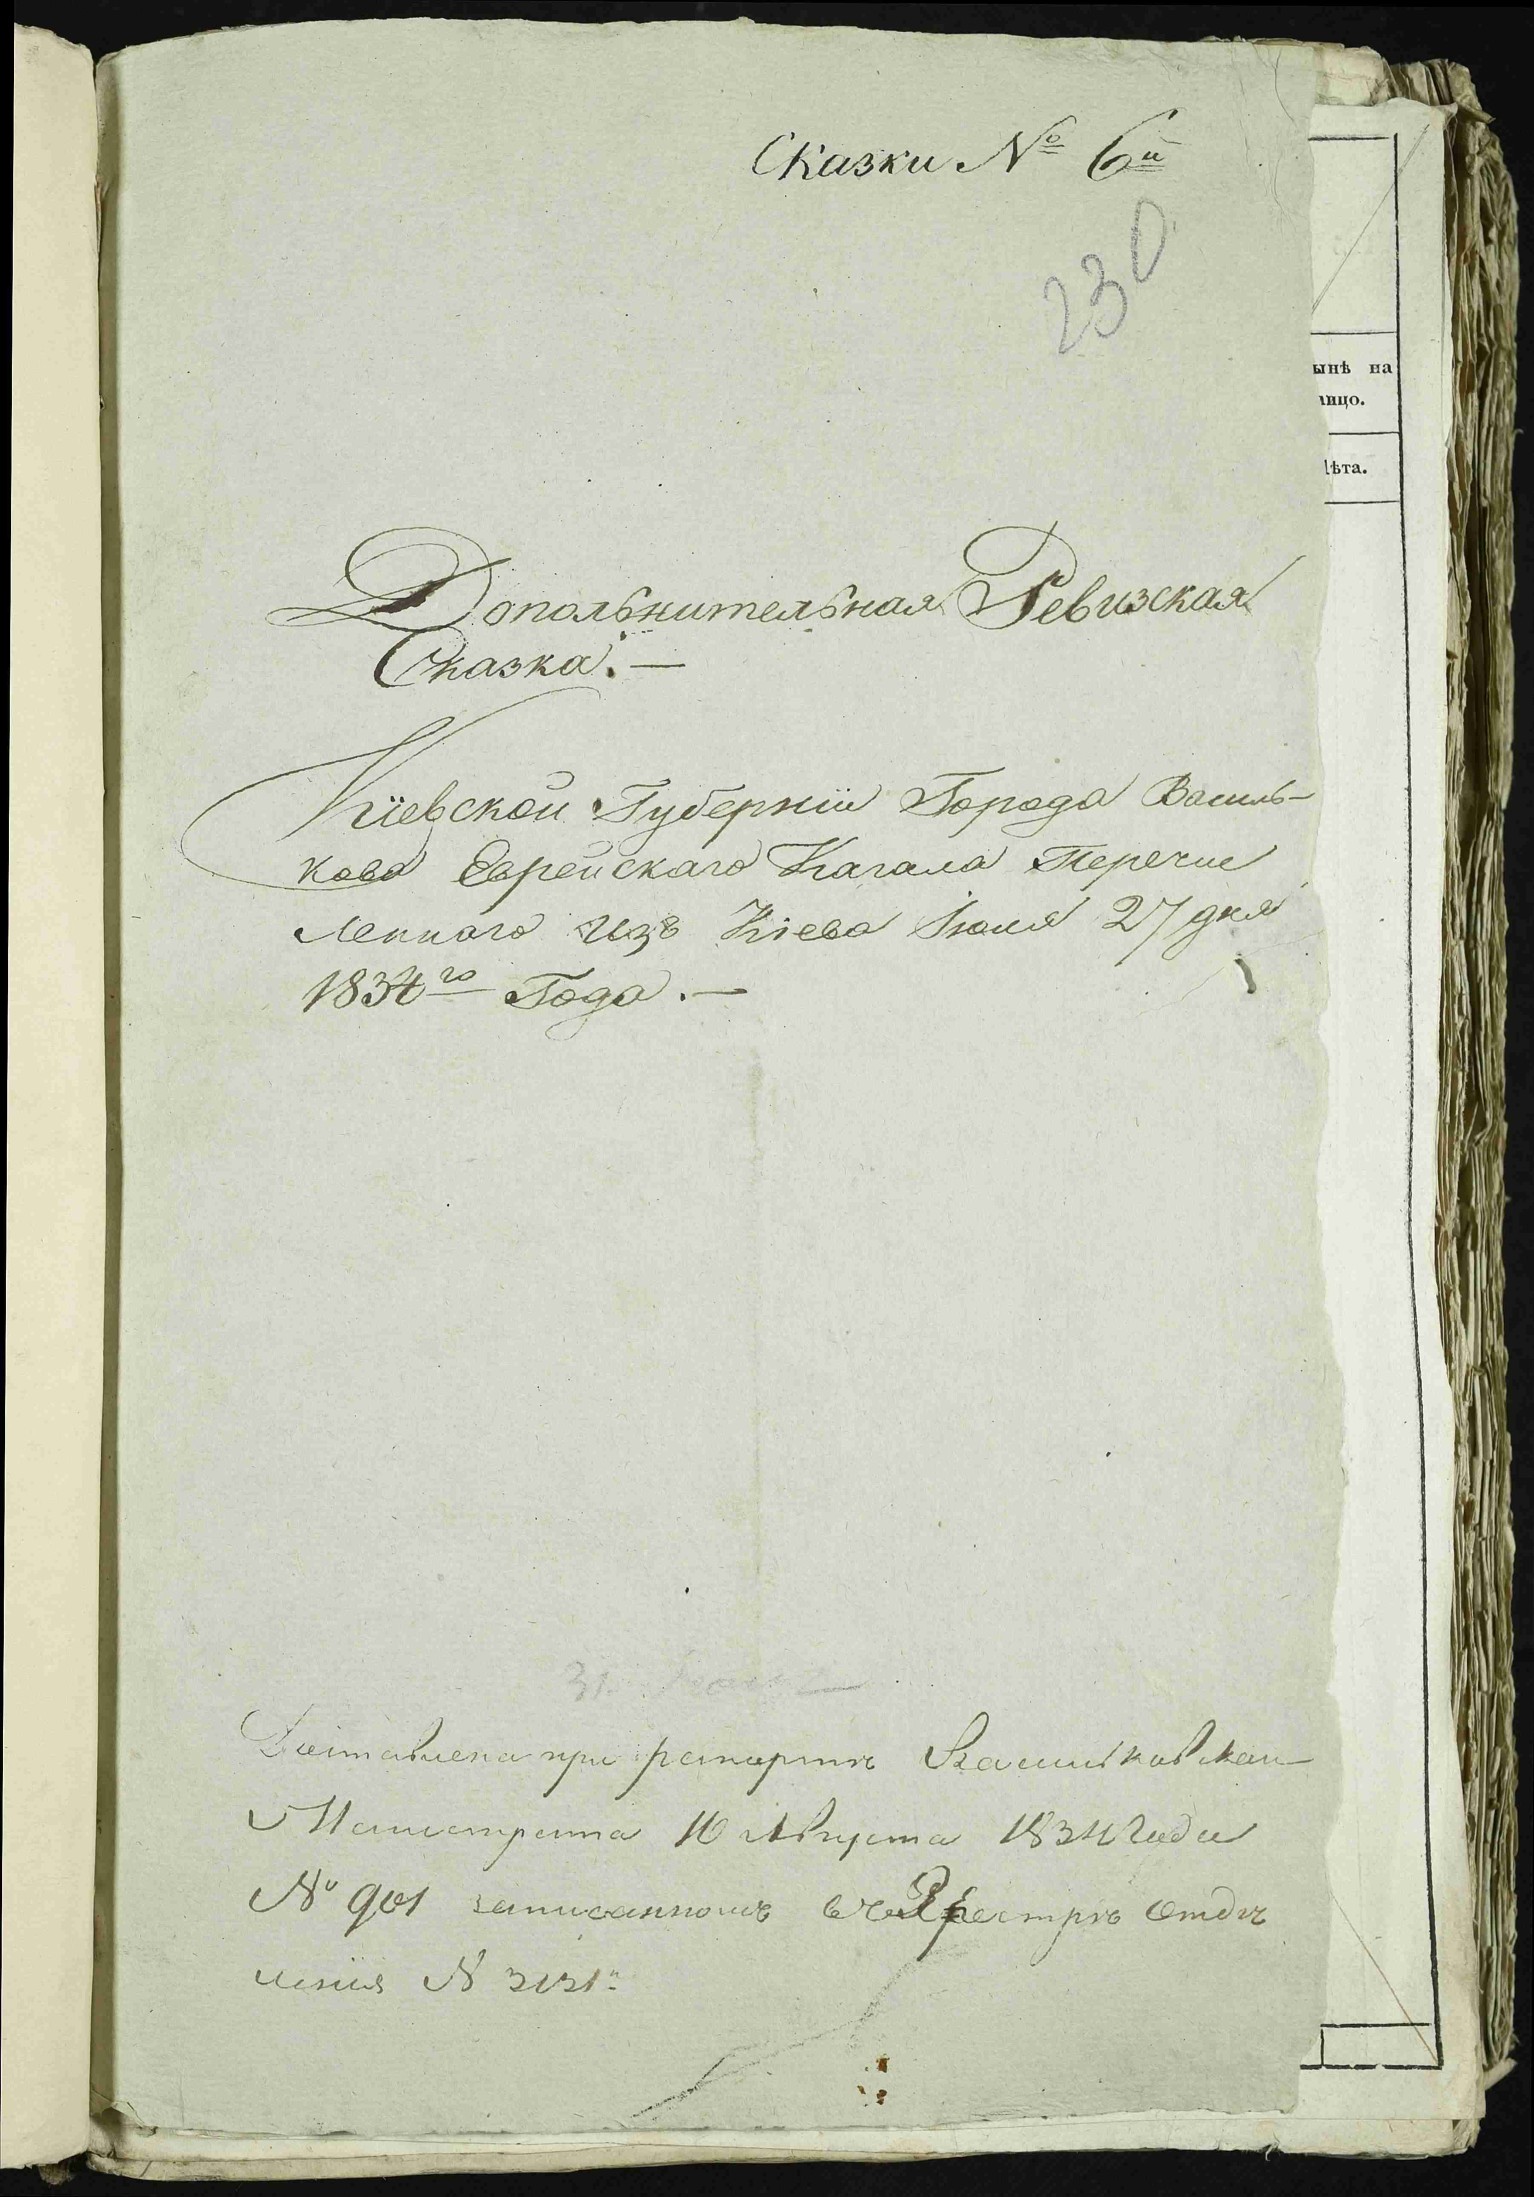 Сказки № 6й
230
ынѣ на
лицо.
Лѣта.
Допольнительная Ревизская
Сказка. —
Кіевской Губерніи Города Василь-
кова Еврейскаго Кагала Перечис
Леннаго изъ Кіева Іюля 27 дня
1834го Года. —
31
Доставлена при рапортѣ Васильковскаго
Магистрата 16 Августа 1834 Года
№ 901 записанномъ въ Реестръ Отдѣ
ленія № 3131